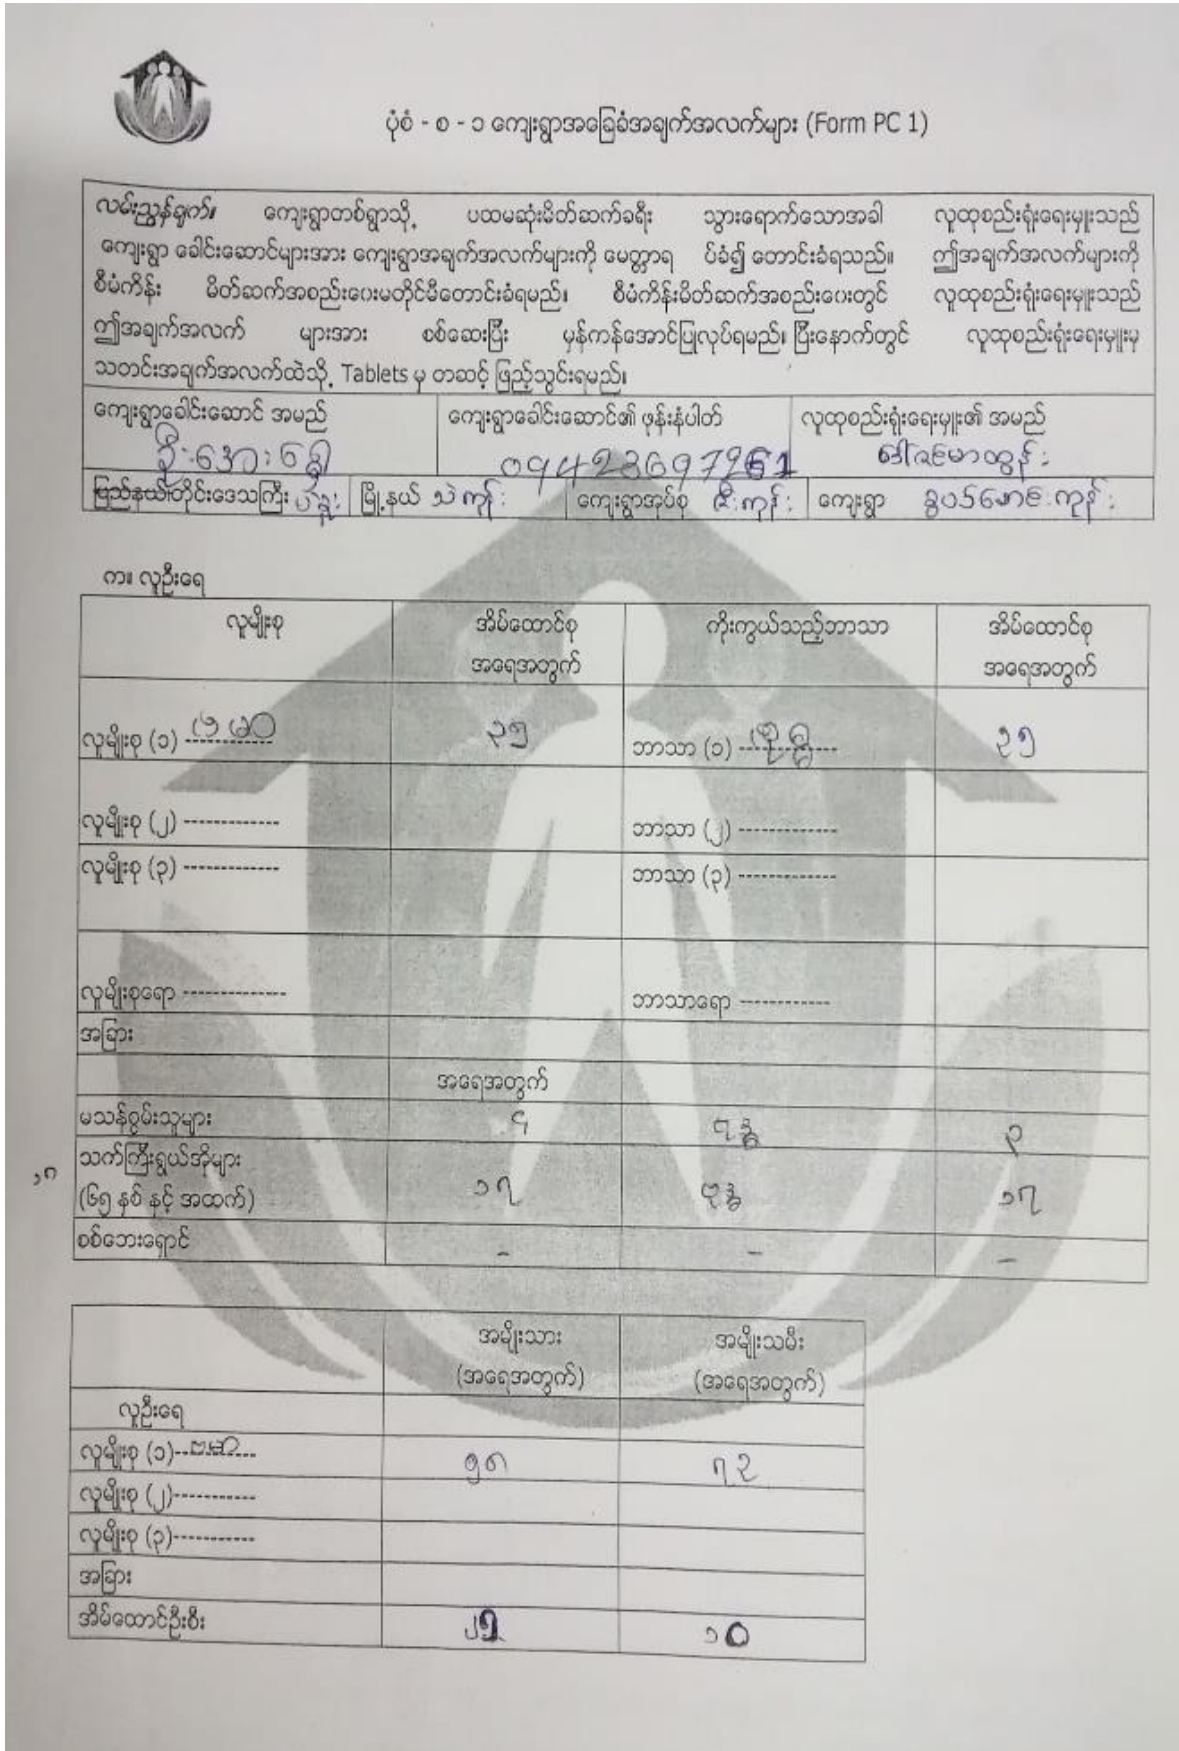 ပုံစံ - စ - ၁ ကျေးရွာအခြေခံအချက်အလက်များ (Form PC 1)
လမ်းညွှန်ချက်။ ကျေးရွာတစ်ရွာသို့ ပထမဆုံးမိတ်ဆက်ခရီး သွားရောက်သောအခါ လူထုစည်းရုံးရေးမှူးသည်
ကျေးရွာ ခေါင်းဆောင်များအား ကျေးရွာအချက်အလက်များကို မေတ္တာရ ပ်ခံ၍ တောင်းခံရသည်။ ဤအချက်အလက်များကို
စီမံကိန်း မိတ်ဆက်အစည်းဝေးမတိုင်မီတောင်းခံရမည်။ စီမံကိန်းမိတ်ဆက်အစည်းဝေးတွင် လူထုစည်းရုံးရေးမှူးသည်
ဤအချက်အလက် များအား စစ်ဆေးပြီး မှန်ကန်အောင်ပြုလုပ်ရမည်၊ ပြီးနောက်တွင် လူထုစည်းရုံးရေးမှူးမှ
သတင်းအချက်အလက်ထဲသို့ Tablets မှ တဆင့် ဖြည့်သွင်းရမည်။
ကျေးရွာခေါင်းဆောင် အမည် ကျေးရွာခေါင်းဆောင်၏ ဖုန်းနံပါတ် လူထုစည်းရုံးရေးမှူး၏ အမည်
ဦးအေးခေါ် ဒေါ်ဇင်မာထွန်း
ပြည်နယ်/တိုင်းဒေသကြီး ပဲခူး မြို့နယ် သဲကုန်း ကျေးရွာအုပ်စု ဇီးကုန်း ကျေးရွာ
က။ လူဦးရေ
လူမျိုးစု အိမ်ထောင်စု အရေအတွက် ကိုးကွယ်သည့်ဘာသာ အိမ်ထောင်စု အရေအတွက်
လူမျိုးစု (၁) ဗမာ ၃၅ ဘာသာ (၁) ဗုဒ္ဓ ၃၅
လူမျိုးစု (၂) ------------- ဘာသာ (၂) -------------
လူမျိုးစု (၃) ------------- ဘာသာ (၃) -------------
လူမျိုးစုရော -------------- ဘာသာရော ------------
အခြား
အရေအတွက်
မသန်စွမ်းသူများ ၄ ဗုဒ္ဓ ၃
၁၈
သက်ကြီးရွယ်အိုများ
(၆၅ နှစ် နှင့် အထက်) ၁၇ ဗုဒ္ဓ ၁၇
စစ်ဘေးရှောင် - - -
အမျိုးသား အမျိုးသမီး
(အရေအတွက်) (အရေအတွက်)
လူဦးရေ
လူမျိုးစု (၁)--ဗမာ--- ၅၈ ၇၃
လူမျိုးစု (၂)-----------
လူမျိုးစု (၃)-----------
အခြား
အိမ်ထောင်ဦးစီး ၂၅ ၁၀